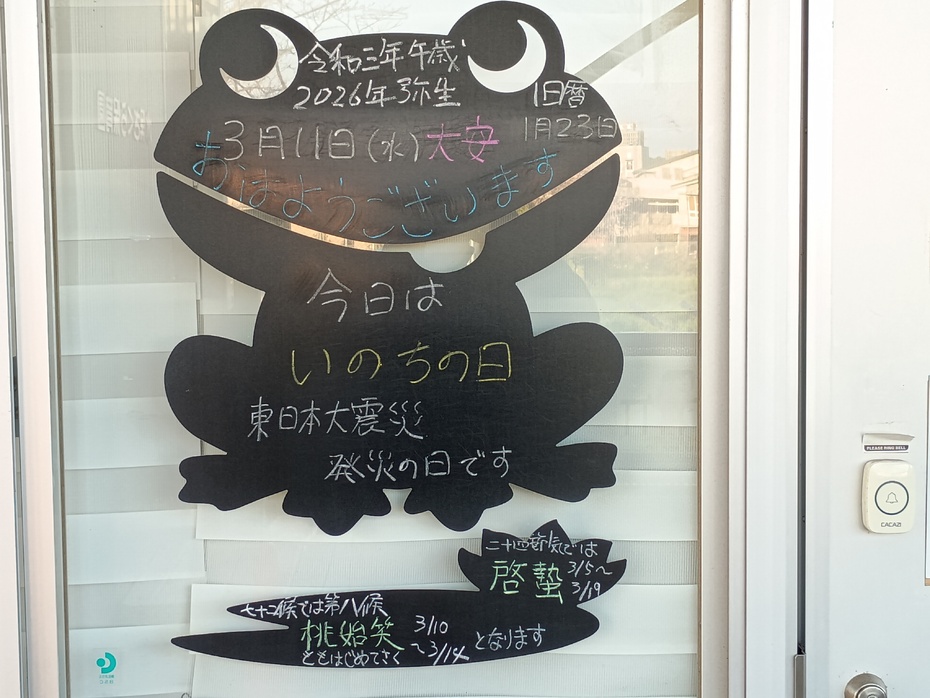 令和三年午歳
2026年弥生
旧暦
1月23日
3月11日(水)大安
おはようございます
今日は
いのちの日
東日本大震災
発災の日です
二十四節気では
啓蟄 3/5〜
3/19
七十二候では第八候
桃始笑 3/10
〜3/14 となります
ももはじめてさく
PLEASE RING BELL
CACAZI